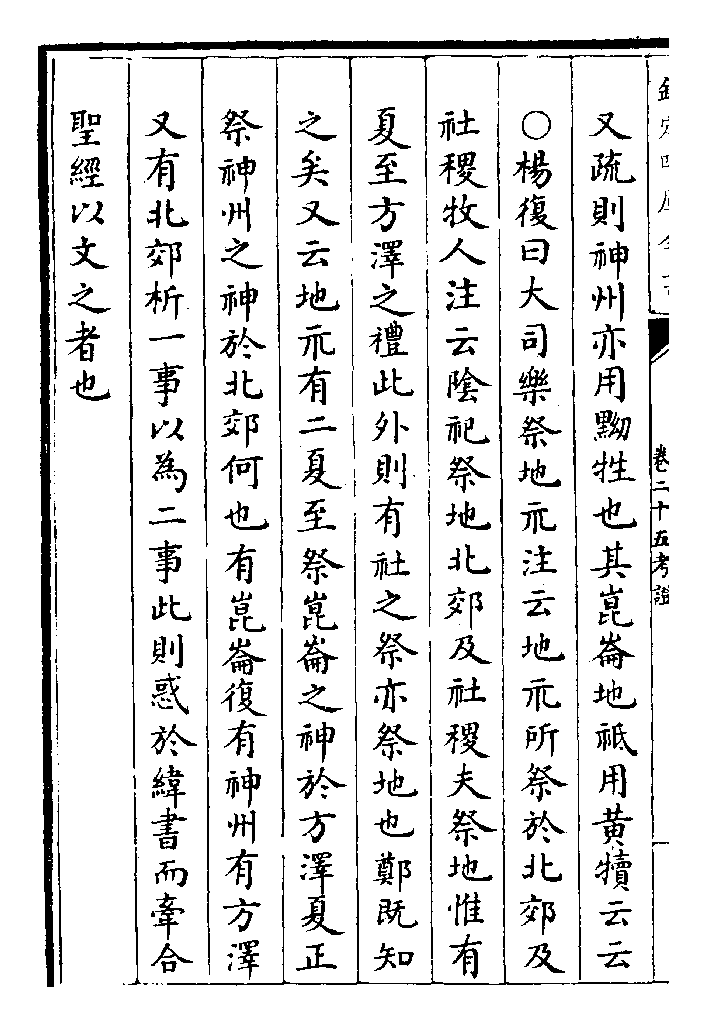 欽定四庫全書
卷二十五考證
又疏則神州亦用黝牲也其崑崙地祇用黄犢云云
○楊復曰大司樂祭地示注云地示所祭於北郊及
社稷牧人注云陰祀祭地北郊及社稷夫祭地惟有
夏至方澤之禮此外則有社之祭亦祭地也鄭既知
之矣又云地示有二夏至祭崑崙之神於方澤夏正
祭神州之神於北郊何也有崑崙復有神州有方澤
又有北郊析一事以為二事此則惑於緯書而牽合
聖經以文之者也